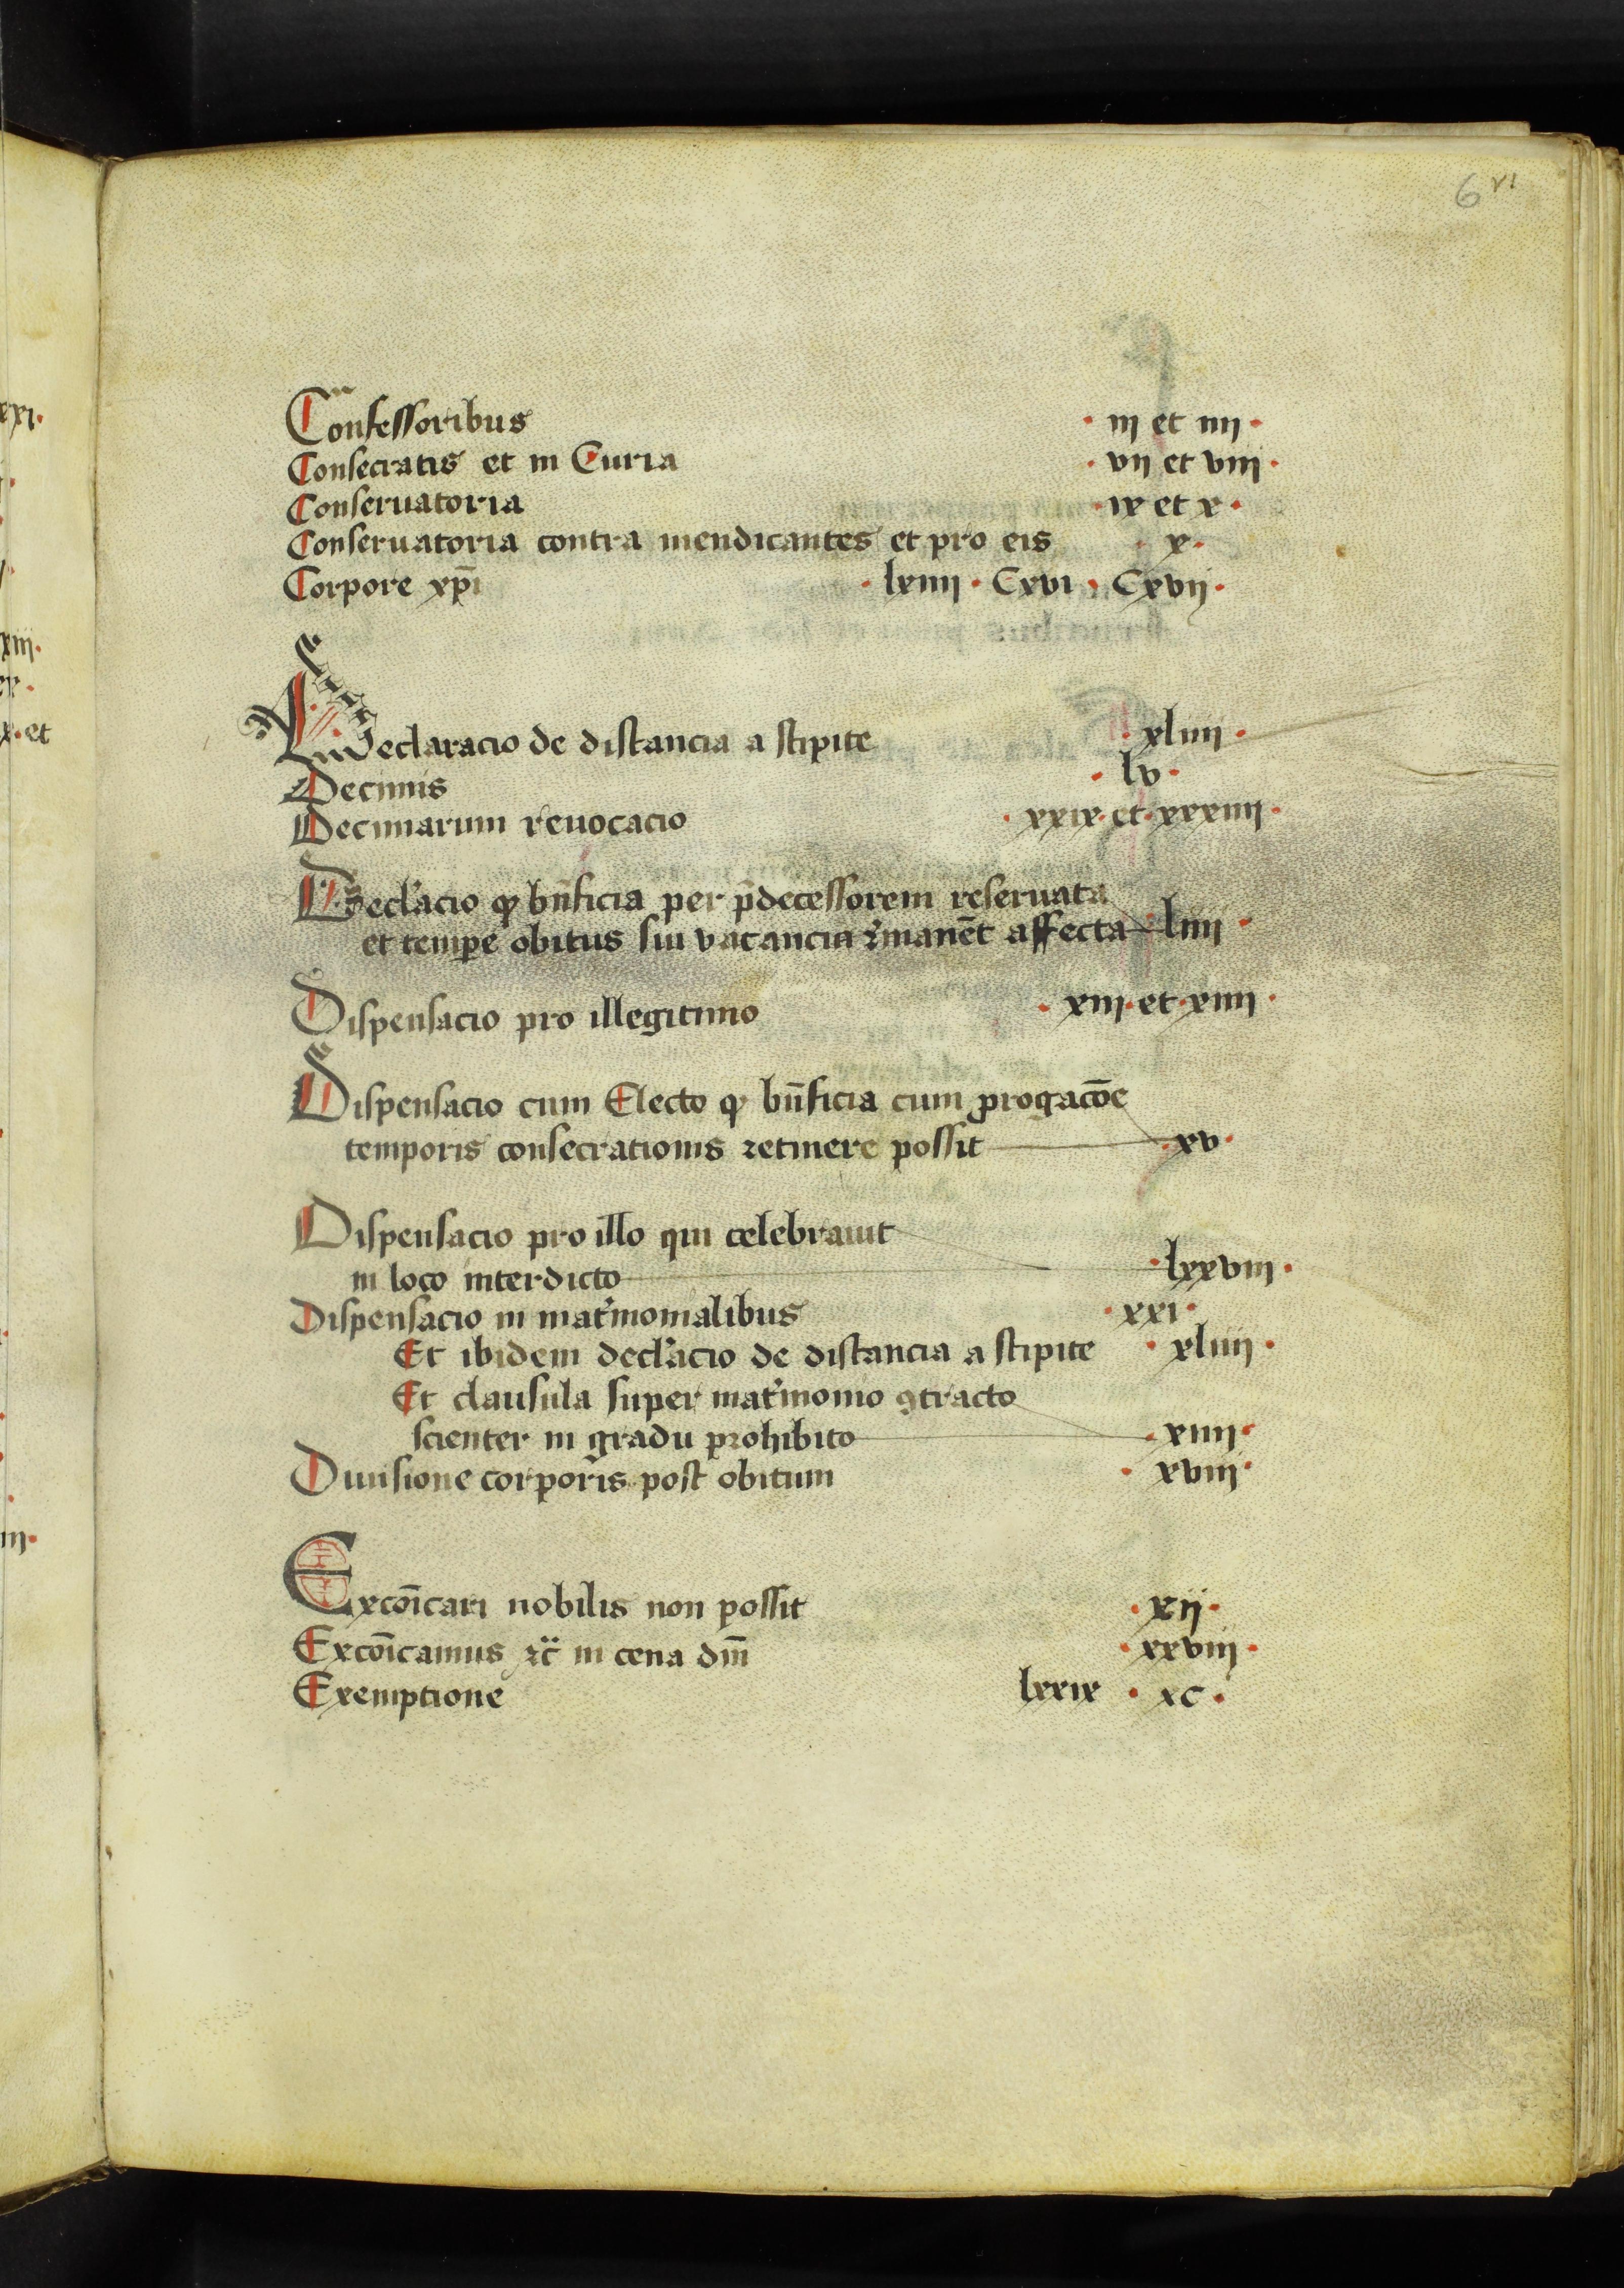 6 vi
Confessoribus · iij et iiij ·
Consecratis et in Curia · vij et viij ·
Conseruatoria · ix et x ·
Conseruatoria contra mendicantes et pro eis · x ·
Corpore xp̄i · lxiiij · Cxvi · Cxvij ·
Declaracio de distancia a stipite · xliiij ·
Decimis · lv ·
Decimarum reuocacio · xxix · et · xxxiiij ·
Decl'acio qꝫ bn̄ficia per p̄decessorem reseruata
et tempe obitus sui vacancia r'manēt affecta · liiij ·
Dispensacio pro illegitimo · xiij · et · xiiij ·
Dispensacio cum Electo qꝫ bn̄ficia cum prorogacōe
temporis consecrationis retinere possit · xv ·
Dispensacio pro illo qui celebrauit
in loco interdicto · lxxviij ·
Dispensacio in mat'imonialibus · xxi ·
Et ibidem decl'acio de distancia a stipite · xliiij ·
Et clausula super mat'imonio ꝯtracto
scienter in gradu prohibito · xiiij ·
Diuisione corporis post obitum · xviij ·
Excōicari nobilis non possit · xij ·
Excōicamus ⁊c̄ in cena dn̄i · xxviij ·
Exemptione lxxix · xc ·
xxi ·
xiij ·
x · et